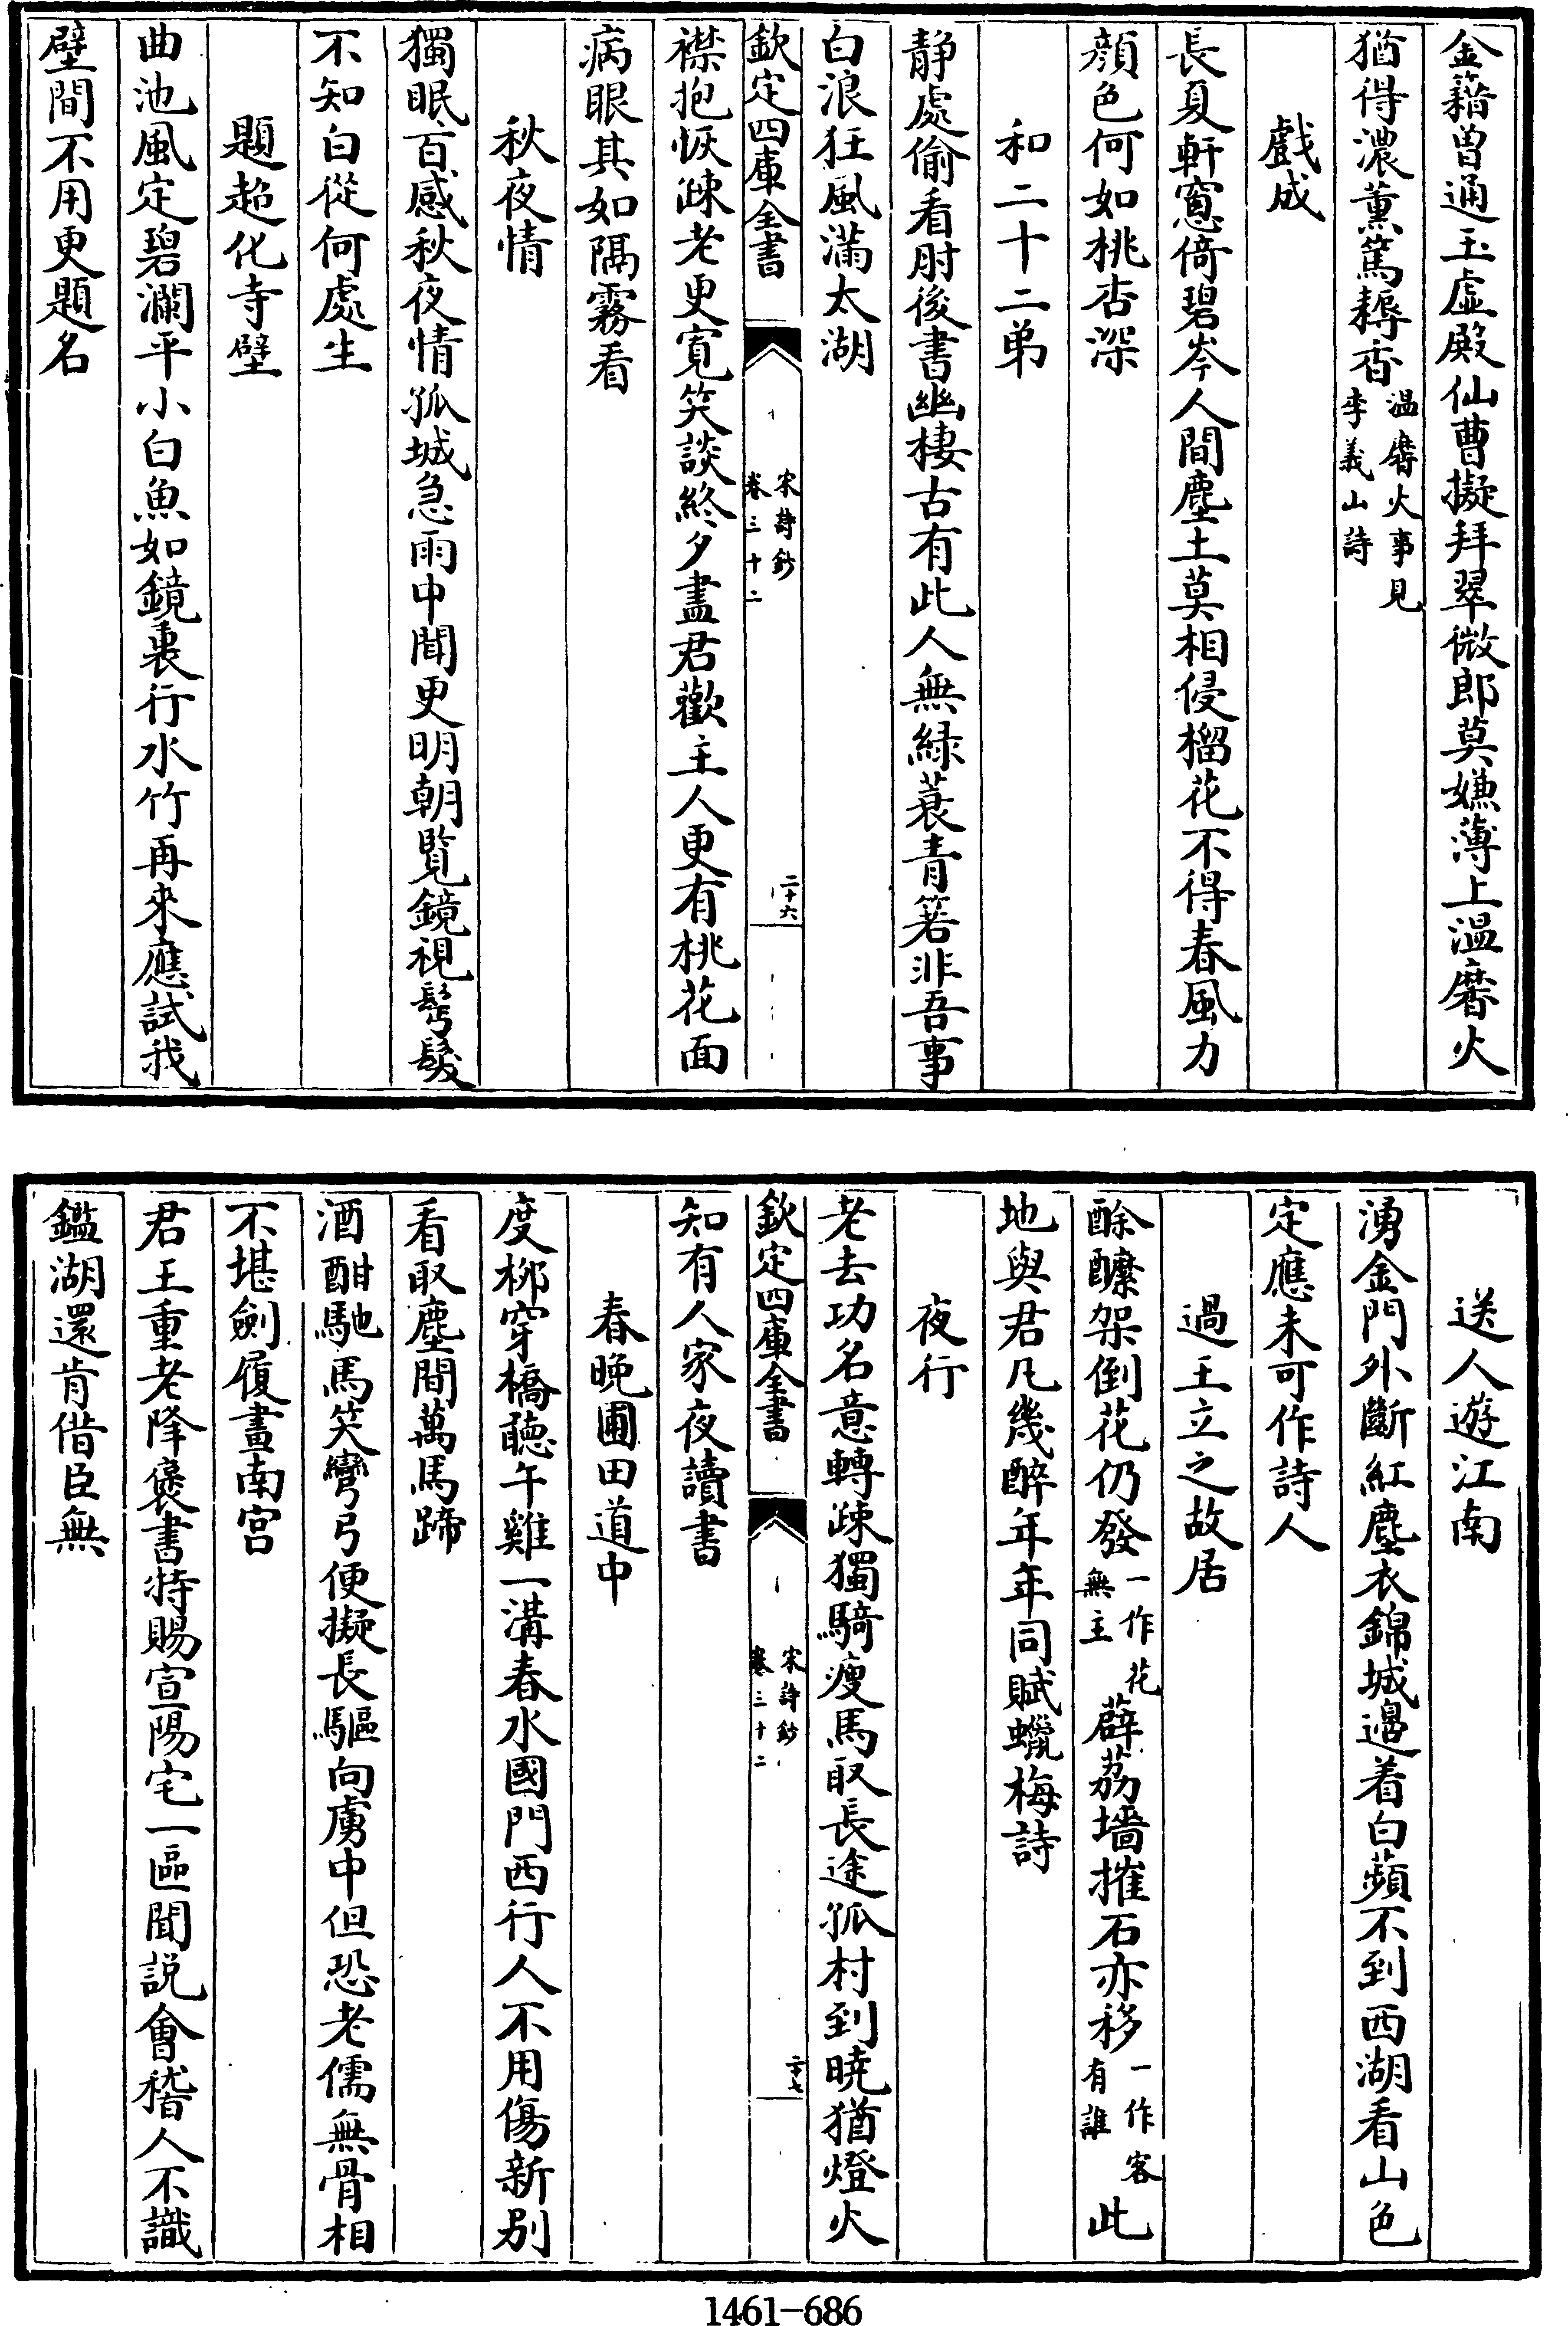 金籍曾通玉虛殿仙曹擬拜翠微郎莫嫌薄上溫黁火
猶得濃薰篤耨香溫黁火事見李義山詩
戲成
長夏軒窻倚碧岑人間塵土莫相侵榴花不得春風力
顔色何如桃杏深
和二十二弟
静處偷看肘後書幽棲古有此人無緑蓑青箬非吾事
白浪狂風滿太湖
欽定四庫全書
宋詩鈔
卷三十二
二十六
襟抱恢疎老更寛笑談終夕盡君歡主人更有桃花面
病眼其如隔霧看
秋夜情
獨眠百感秋夜情孤城急雨中聞更明朝覧鏡視髩髮
不知白從何處生
題超化寺壁
曲池風定碧瀾平小白魚如鏡裏行水竹再來應試我
壁間不用更題名
送人遊江南
湧金門外斷紅塵衣錦城邉着白蘋不到西湖看山色
定應未可作詩人
過王立之故居
酴醾架倒花仍發一作花無主薜荔墻摧石亦移一作客有誰此
地與君凡幾醉年年同賦蠟梅詩
夜行
老去功名意轉疎獨騎瘦馬取長途孤村到暁猶燈火
欽定四庫全書
宋詩鈔
卷三十二
二十七
知有人家夜讀書
春晚圃田道中
度桞穿橋聽午雞一溝春水國門西行人不用傷新别
看取塵間萬馬蹄
酒酣馳馬笑彎弓便擬長驅向虜中但恐老儒無骨相
不堪劍履畫南宫
君王重老降褒書特賜宣陽宅一區聞説會稽人不識
鑑湖還肯借臣無
1461-686